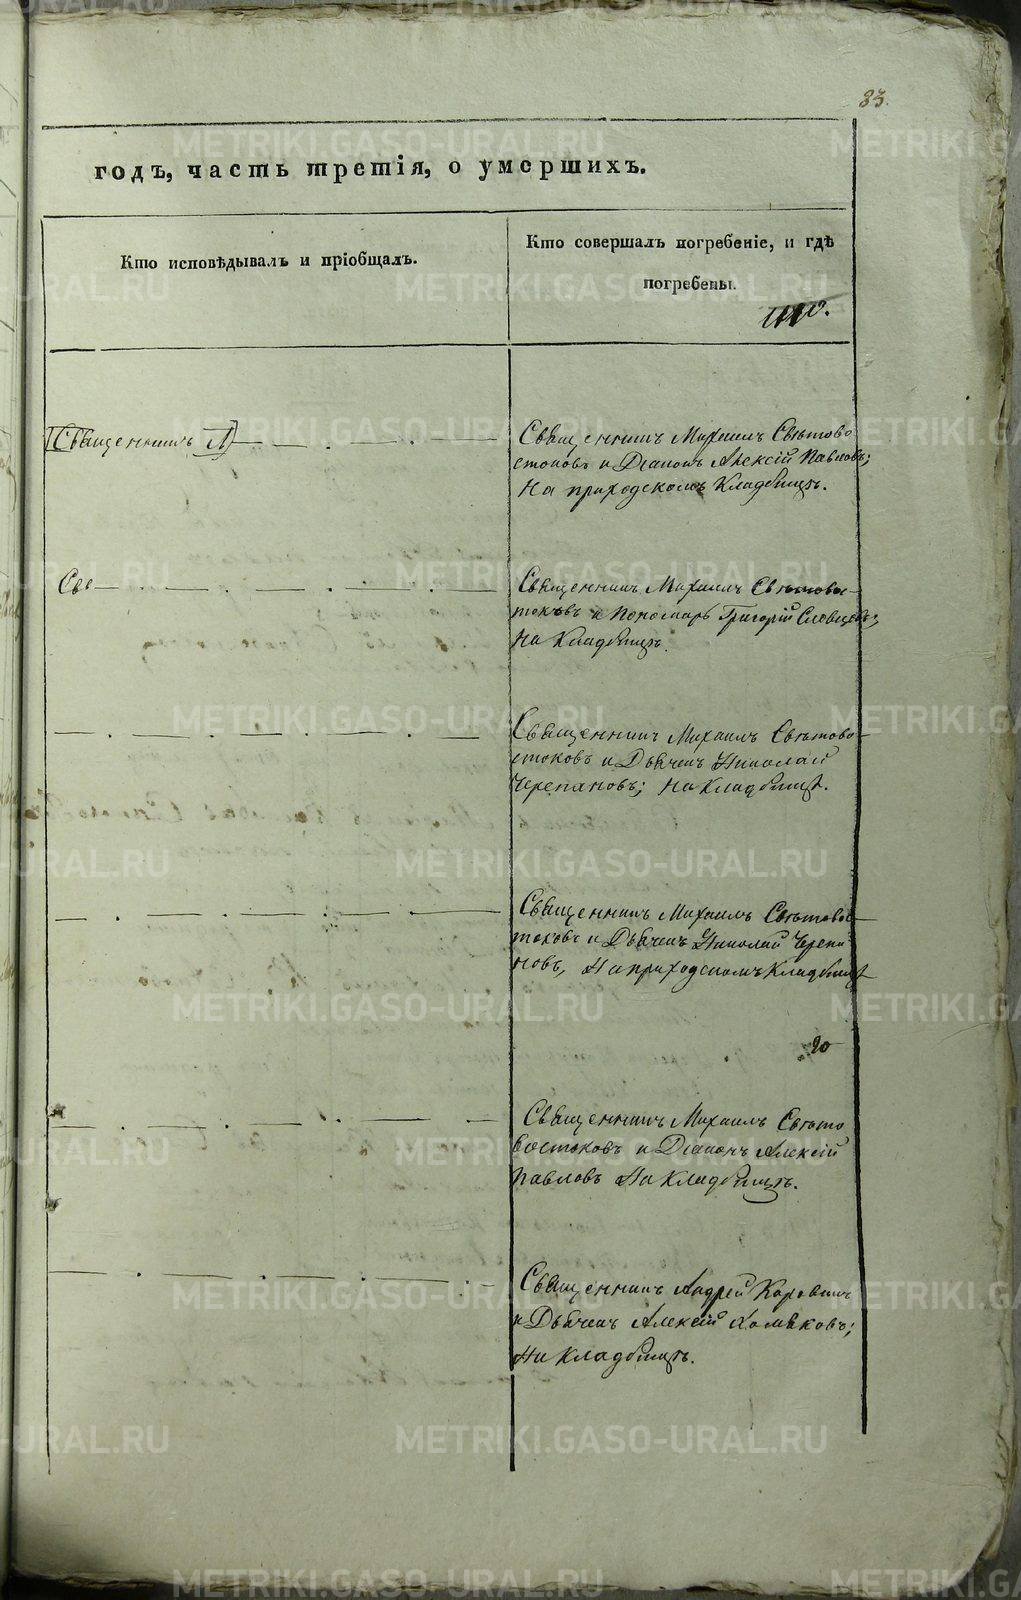 83.
годъ, часть третія, о умершихъ.
Кто исповѣдывалъ и пріобщалъ.
Кто совершалъ погребеніе, и гдѣ
погребены.
Священникъ А
Священникъ Михаилъ Свѣтово
стоковъ и Діаконъ Алексій Павловъ;
На приходскомъ Кладбищѣ.
Све
Священникъ Михаилъ Свѣтовос-
токовъ и Пономарь Григорій Словцовъ;
На Кладбищѣ.
Священникъ Михаилъ Свѣтово-
стоковъ и Дьячекъ Николай
Черепановъ; На Кладбищѣ.
Священникъ Михаилъ Свѣтовос-
токовъ и Дьячекъ Николай Черепа
новъ, На приходскомъ Кладбищѣ
20
Священникъ Михаилъ Свѣто
востоковъ и Діаконъ Алексій
Павловъ На Кладбищѣ.
Священникъ Андрей
и Дьячекъ Алексій Хомяковъ;
На Кладбищѣ.
METRIKI.GASO-URAL.RU